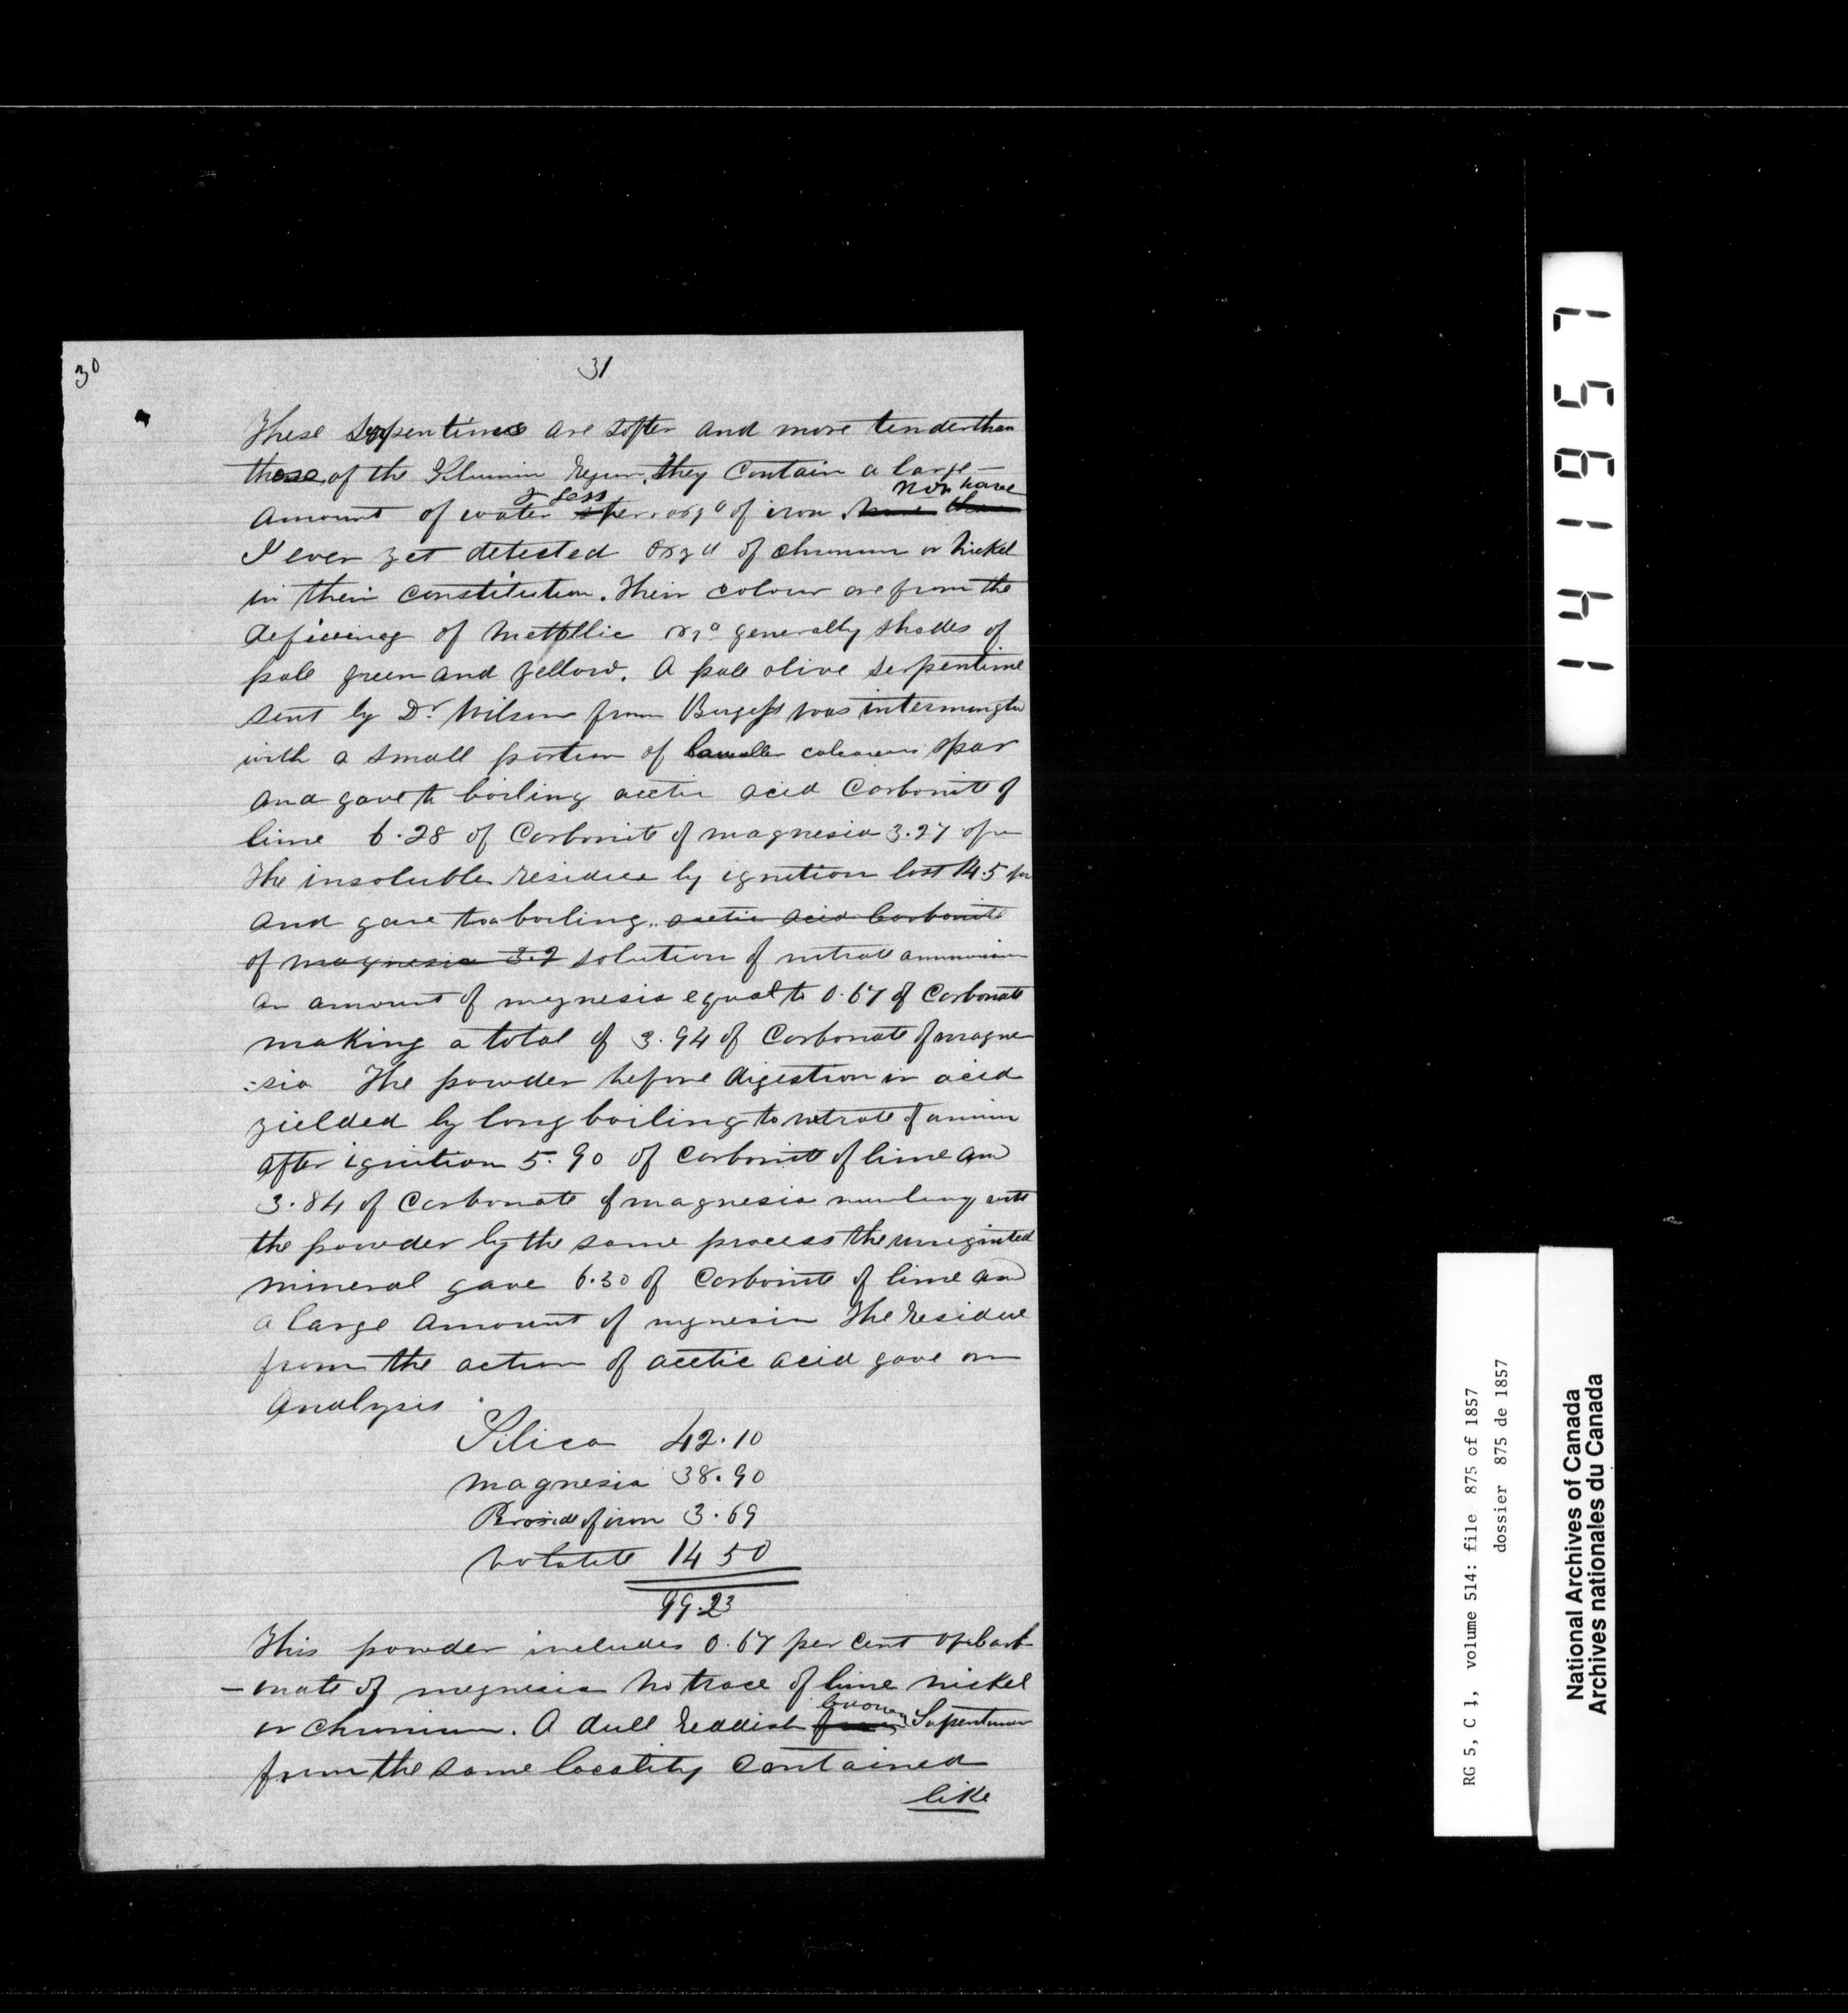 30
31
These serpentines are softer and more tender than
those of the Region. They contain a large
amount of water & less oxyd of iron. nor have
I ever yet detected oxyd of chromium or nickel
in their constitution. Their colour are from the
deficiency of mettllic oxyd generally shades of
pale green and yellow. A pale olive serpentine
sent by Dr Wilson from Burgess was intermingled
with a small portion of lamellar calcareous spar
and gave to boiling acetic acid Carbonate of
lime 6.28 of Carbonate of magnesia 3.27 
The insoluble residue by ignition lost 14.5
and gave to a boiling acetic acid Carbonate
of magnesia 3.2 solution of nitrate ammonium
an amount of magnesia equal to 0.67 of Carbonate
making a total of 3.94 of Carbonate of magne
:sia The powder before digestion in acid
yielded by long boiling to nitrate of
after ignition 5.90 of Carbonate of lime and
3.84 of Carbonate of magnesia
the powder by the same process the unignited
mineral gave 6.30 of Carbonate of lime and
a large amount of magnesia The residue
from the action of acetic acid gave on
Analysis
Silica 42.10
magnesia 38.90
of iron 3.69
volatile 14 50
99.23
This powder includes 0.67 per cent of Carb
-onate of magnesia no trace of lime nickel
or chromium. A dull reddish brown Serpentine
from the same locality contained
like
141957
RG 5, C 1, volume 514: file 875 of 1857
dossier 875 de 1857
National Archives of Canada
Archives nationales du Canada